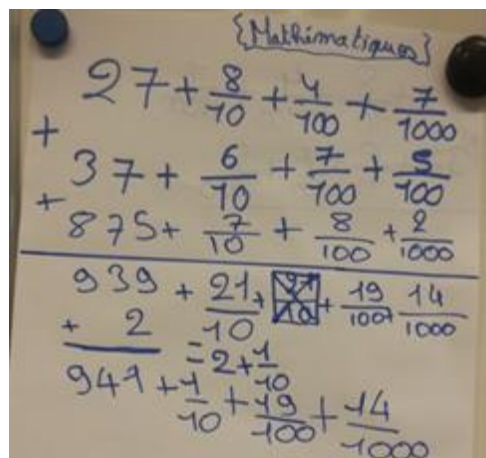 {Mathématiques}
27 + 8/10 + 4/100 + 7/1000
+
37 + 6/10 + 7/100 + 5/100
+
875 + 7/10 + 8/100 + 2/1000
939 + 21/10 + + 19/100 + 14/1000
+ 2
= 2 + 1/10
941 + 1/10 + 19/100 + 14/1000